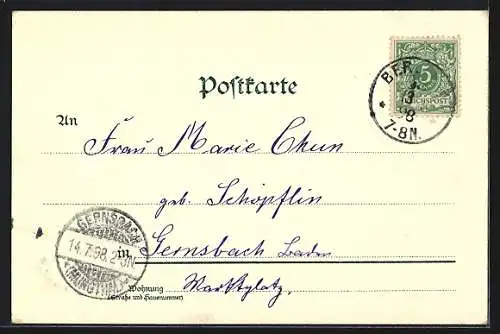 Postkarte
BER
5
REICHSPOST
3
98
7-8N.
An
Frau Marie Chun
geb. Schöpflin
GERNSBACH
14.7.98.2-3N.
(MURGTHAL)
in Gernsbach Baden
Marktplatz.
Wohnung
(Straße und Hausnummer)